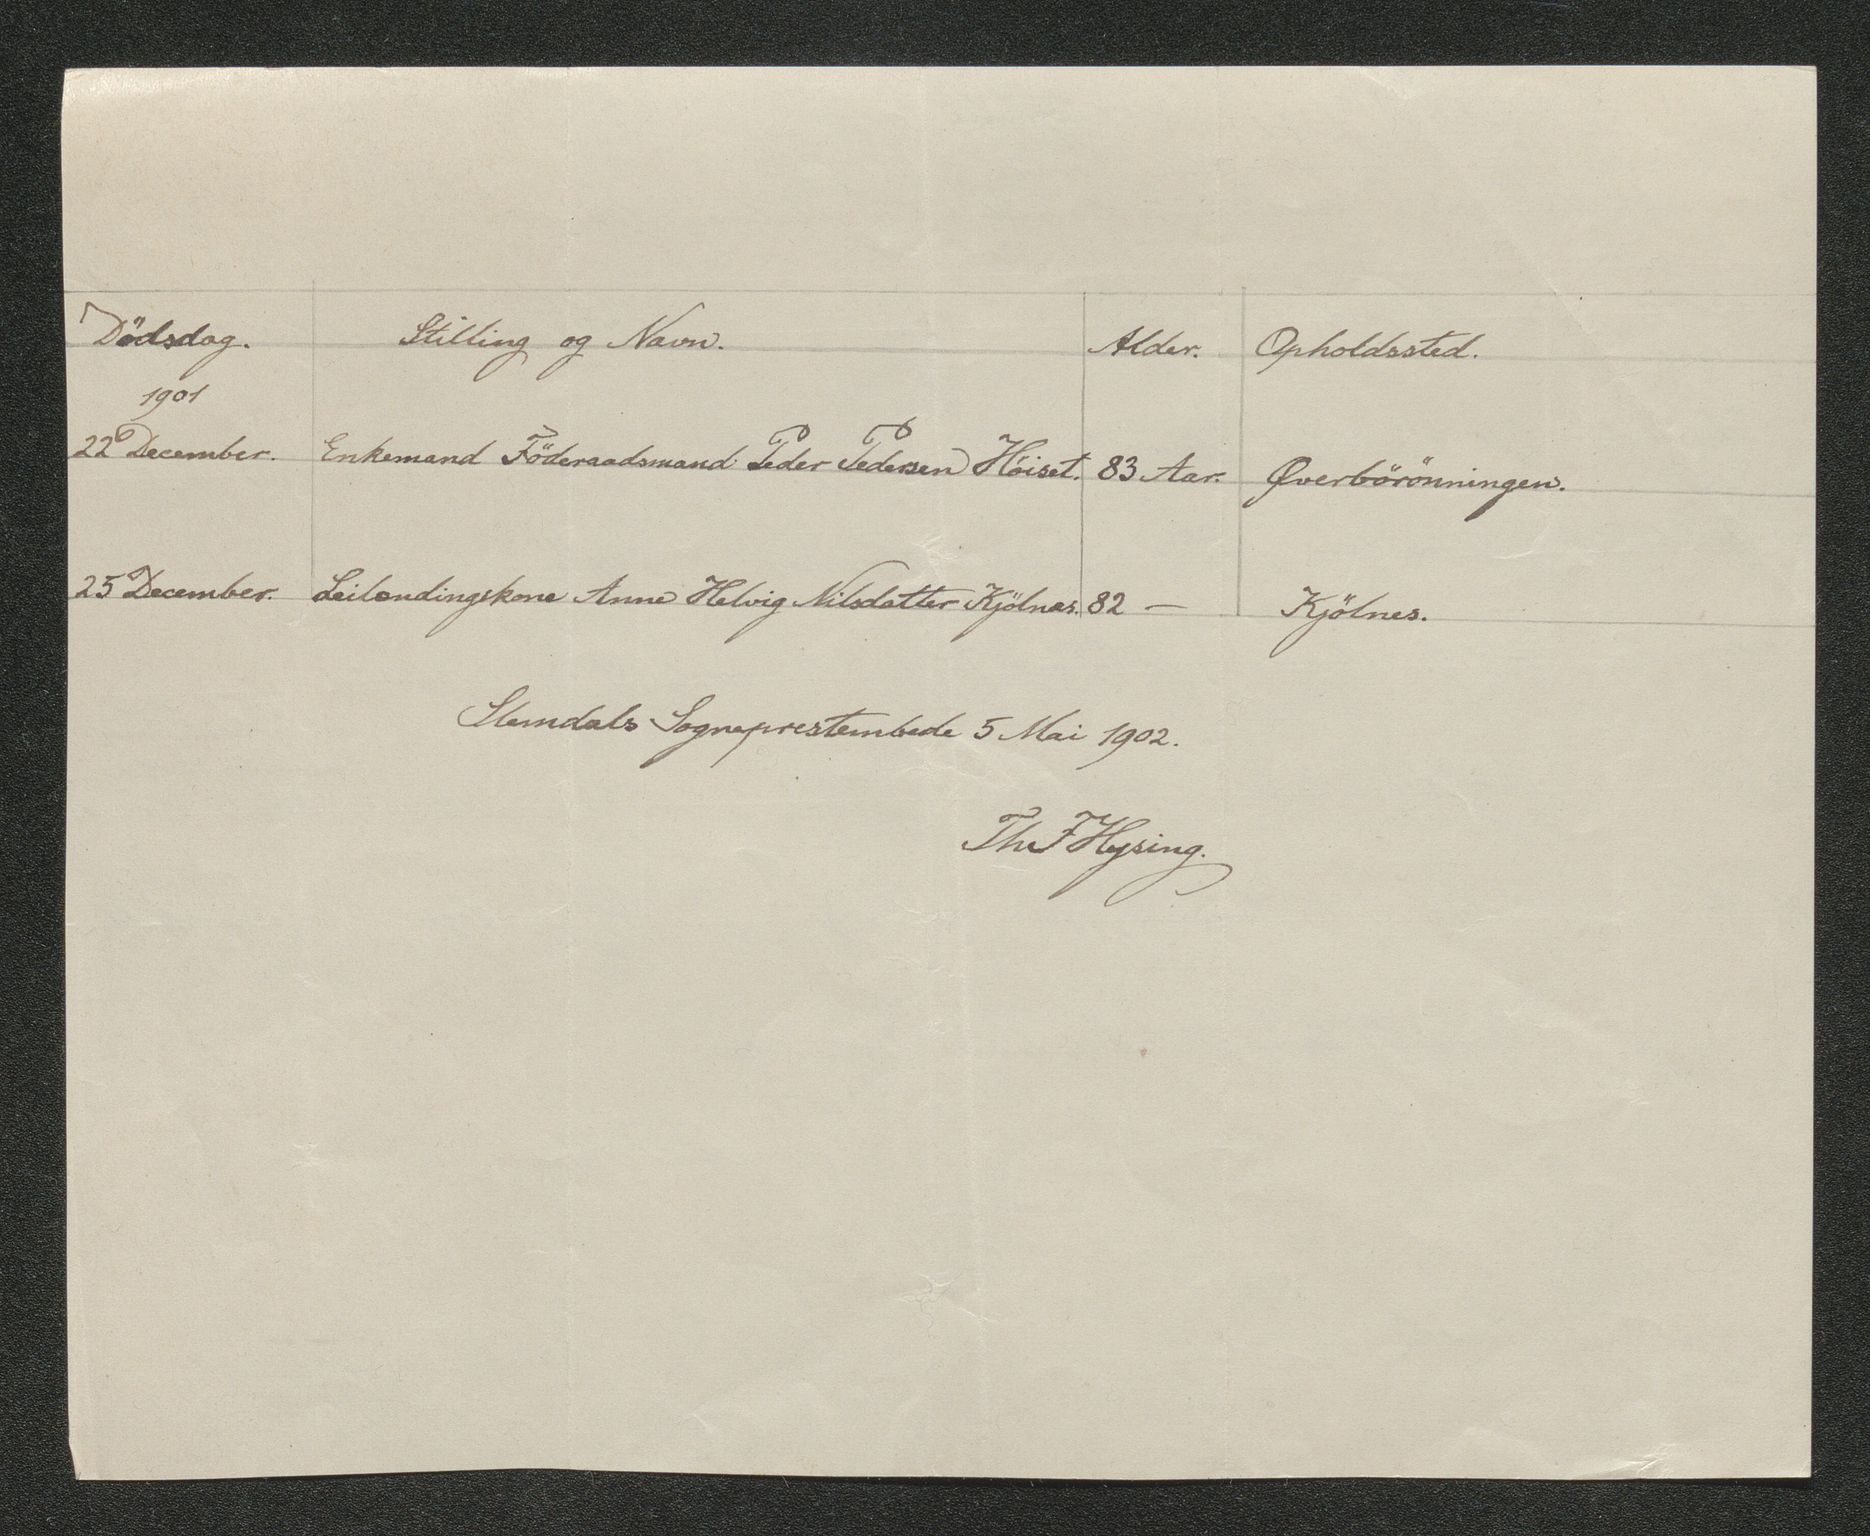 Dödsdag. Stilling og Navn. Alder. Opholdssted.
1901
22 December. Enkemand Föderaadsmand Peder Pedersen Höiset. 83 Aar. Øverbörönningen.
25 December. Leilendingskone Anne Helvig Nilsdatter Kjölnes. 82 — Kjölnes.
Slemdals Sogneprestembede 5 Mai 1902.
Th F Hysing.